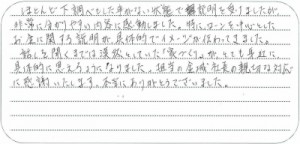 ほとんど下調べをした事がない状態で説明を受けましたが
非常に分かりやすい内容に感動しました。特にローンを中心とした
お金に関する説明が具体的でイメージが伝わってきました。
話しを聞くまでは漠然としていた「家づくり」が、とても身近に、
具体的に思えるようになりました。担当の金城社長の親切な対応
に感謝いたします。本当にありがとうございました。